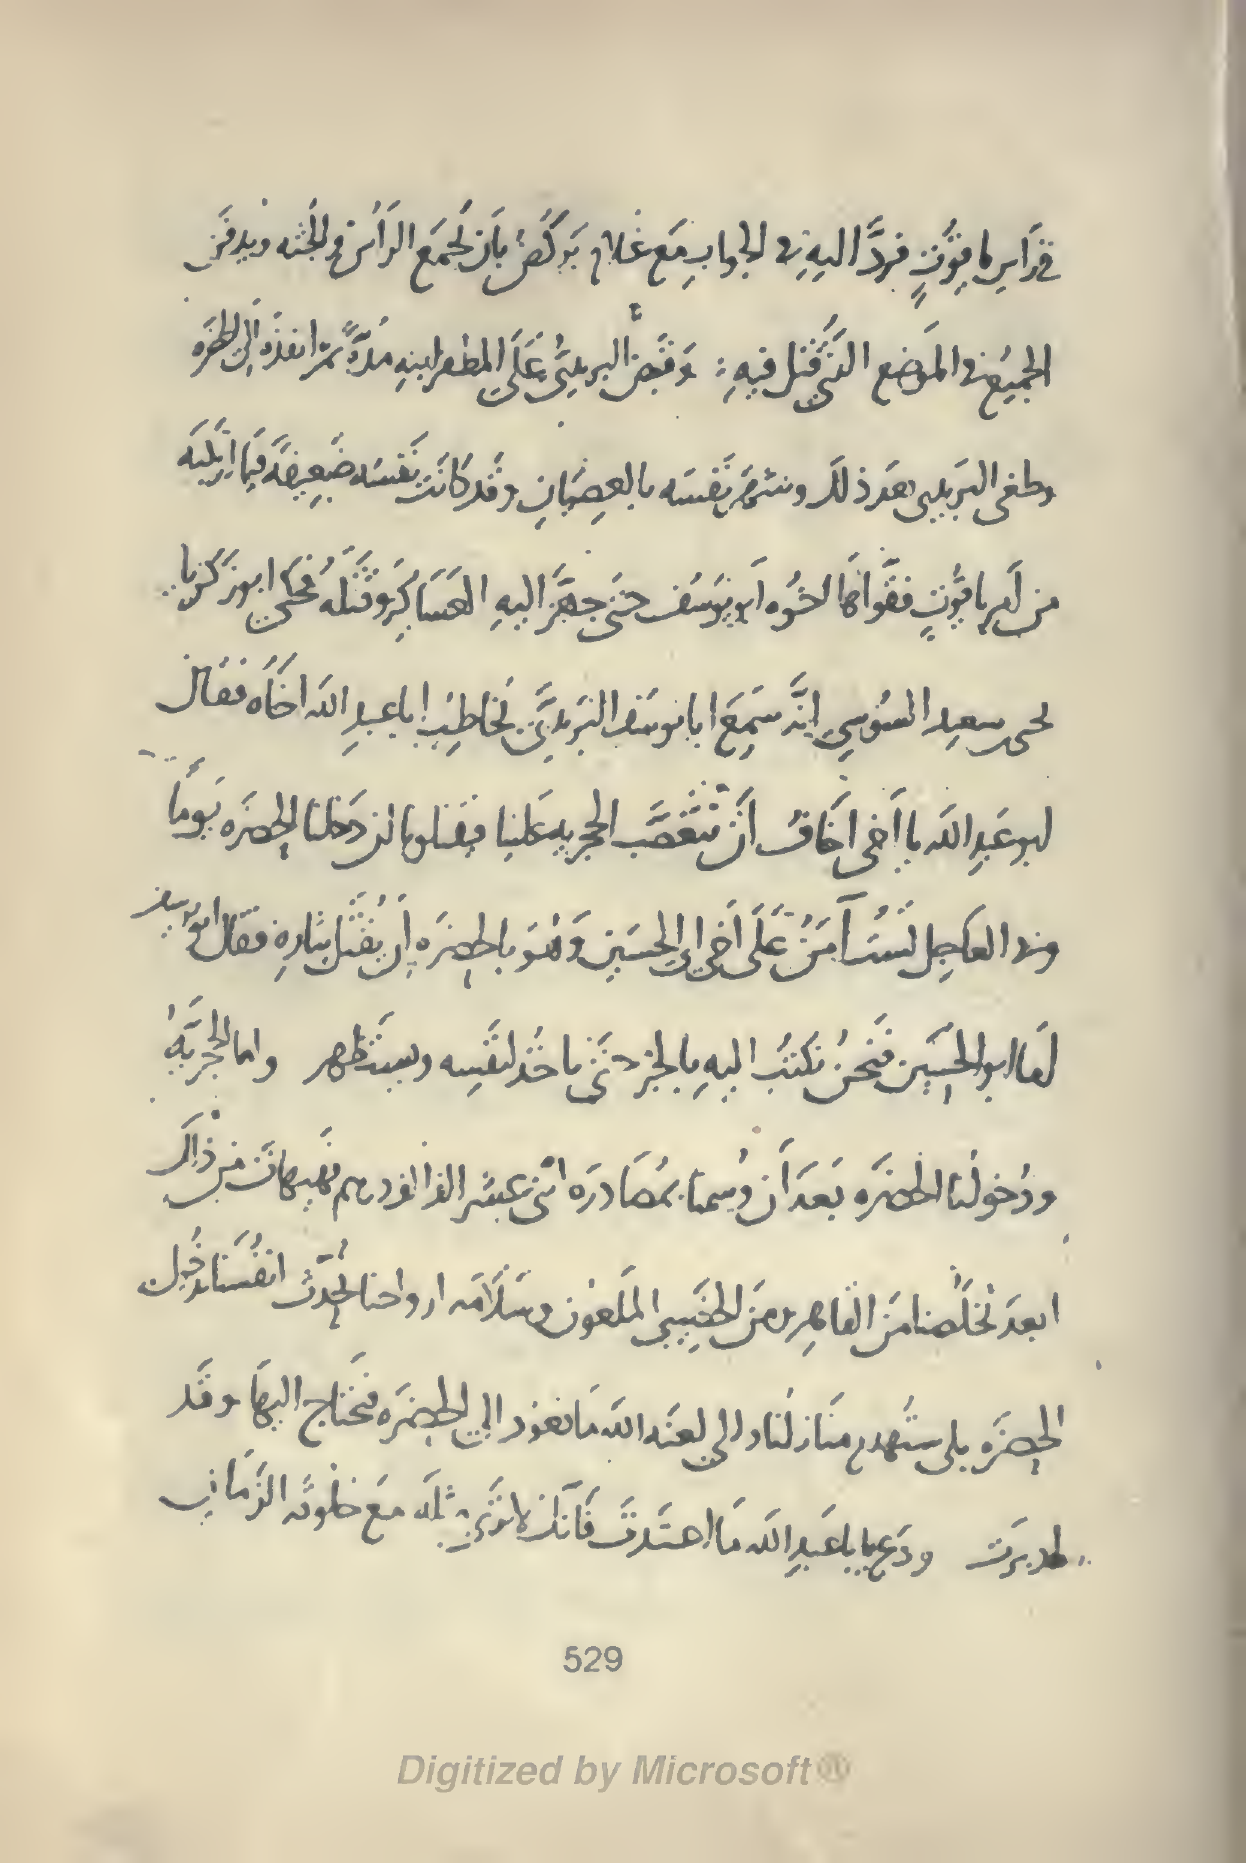 في راس ياقوت فردّ اليه في الجواب مع غلام يركض بان يُجمع الراس والجثه ويدفن
الجميع في الموضع الذي قتل فيه : وقبض البريدي على المظفر ابنه مدةً ثم انفذه الى الحضره
وطغى البريدي بعد ذلك وشمر نفسه بالعصيان وقد كانت نفسه ضعيفة
من امر ياقوت فقواها اخوه ابو يوسف حتى جهز اليه العساكر وقتله فحكى ابو زكريا
يحيى بن سعيد السوسي انه سمع ابا يوسف البريدي يخاطب ابا عبد الله اخاه فقال
ابو عبد الله يا اخي اخاف ان تتعصب الحجريه علينا فيقتلونا ان دخلنا الحضره يوماً
ومن العاجل لست آمن على اخي ابي الحسين وهو بالحضره ان يقتل بثاره فقال ابو يوسف
اما ابو الحسين فنحن نكتب اليه بالخبر حتى ياخذ لنفسه ويستظهر واما الحجرية
ودخولنا الحضره بعد ان وسمنا بمصادره اثني عشر الف الف درهم فهيهات من ذاك
ابعد تخلصنا من القاهر ومن الخصيبي الملعون وسلامه ارواحنا نُحدث انفسنا بدخول
الحضره بلى ستهدم منازلنا والى لعنه الله ما نعود الى الحضره فنحتاج اليها وقد
ودع يا با عبد الله ما فانك لا ترى مثله مع خلوقه الزمان
529
Digitized by Microsoft®